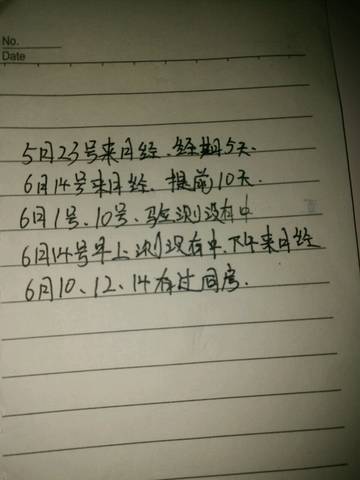 No.
Date
5月23号来月经、经期5天.
6月14号来月经、提前10天.
6月1号、10号、验测没有中
6月14号早上测没有中下午来月经
6月10、12、14有过同房.